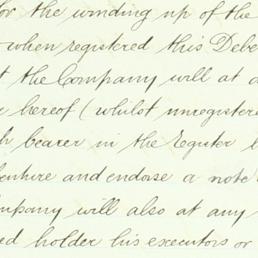 for the winding up of the
when registered this Debe
t the Company will at a
hereof (whilst unregistere
h bearer in the register
enture and endorse a note
ompany will also at any
ed holder his executors or